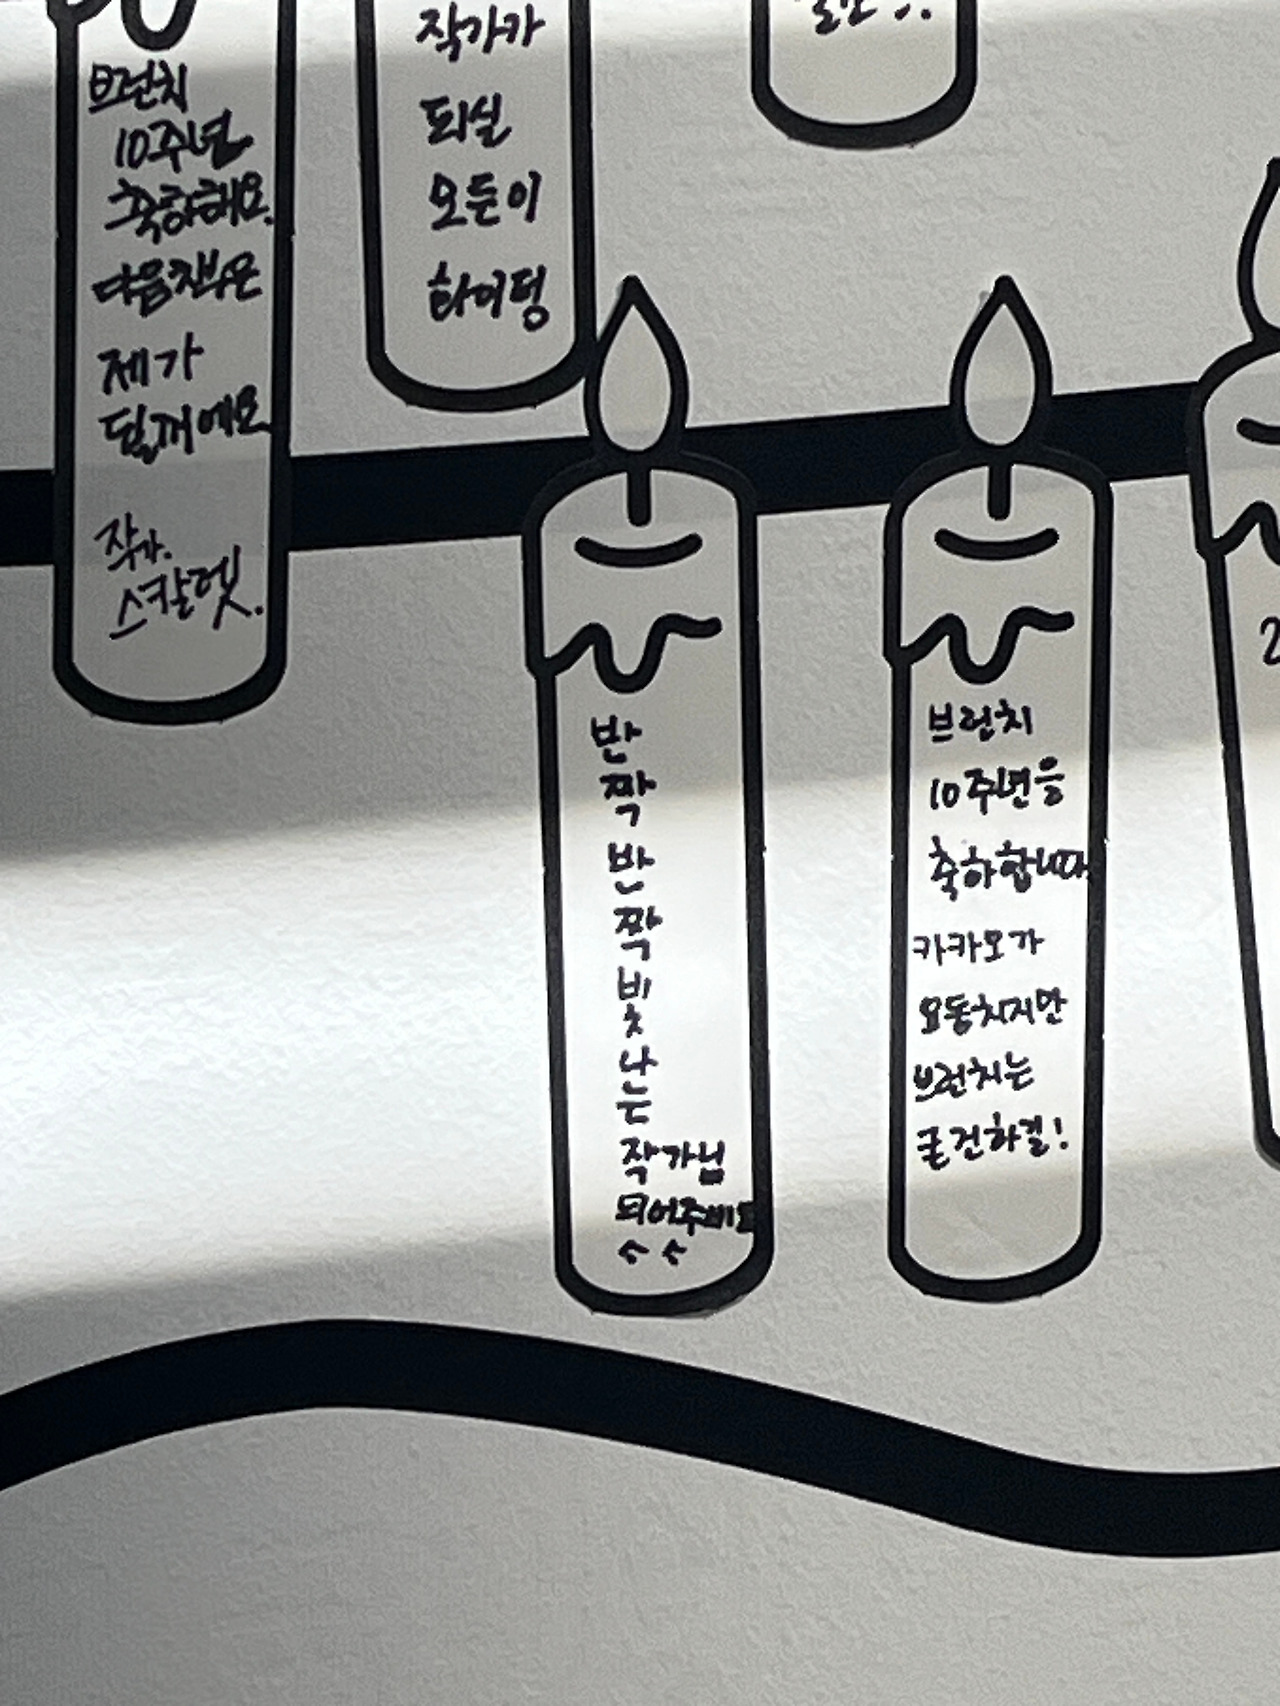 브런치
10주년
축하해요.
다음 전부은
제가
될꺼에요
작가.
스칼렛.
작가가
되실
모든이
화이팅
반
짝
반
짝
빛
나
는
작가님
되어주세요
^ ^
브런치
10주년을
축하합니다
카카오가
요동치지만
브런치는
굳건하길!
2